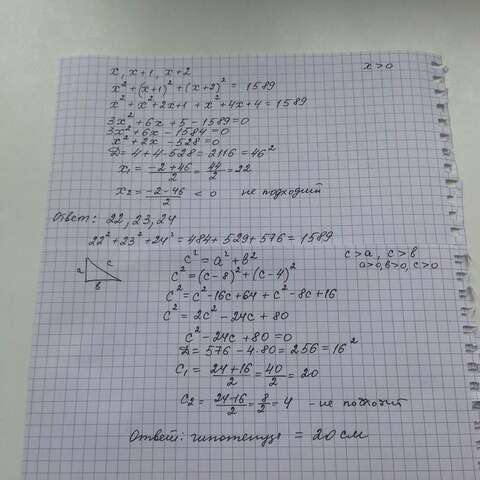 x, x+1, x+2
x>0
x²+(x+1)²+(x+2)² = 1589
x²+x²+2x+1+x²+4x+4=1589
3x²+6x+5-1589=0
3x²+6x-1584=0
x²+2x-528=0
D=4+4·528=2116=46²
x₁ = (-2+46)/2 = 44/2 = 22
x₂ = (-2-46)/2 < 0 не подходит
Ответ: 22, 23, 24
22²+23²+24²=484+529+576=1589
a c b
c²=a²+b²
c>a, c>b
a>0, b>0, c>0
c²=(c-8)²+(c-4)²
c²=c²-16c+64+c²-8c+16
c²=2c²-24c+80
c²-24c+80=0
D=576-4·80=256=16²
c₁ = (24+16)/2 = 40/2 = 20
c₂ = (24-16)/2 = 8/2 = 4 - не подходит
Ответ: гипотенуза = 20 см